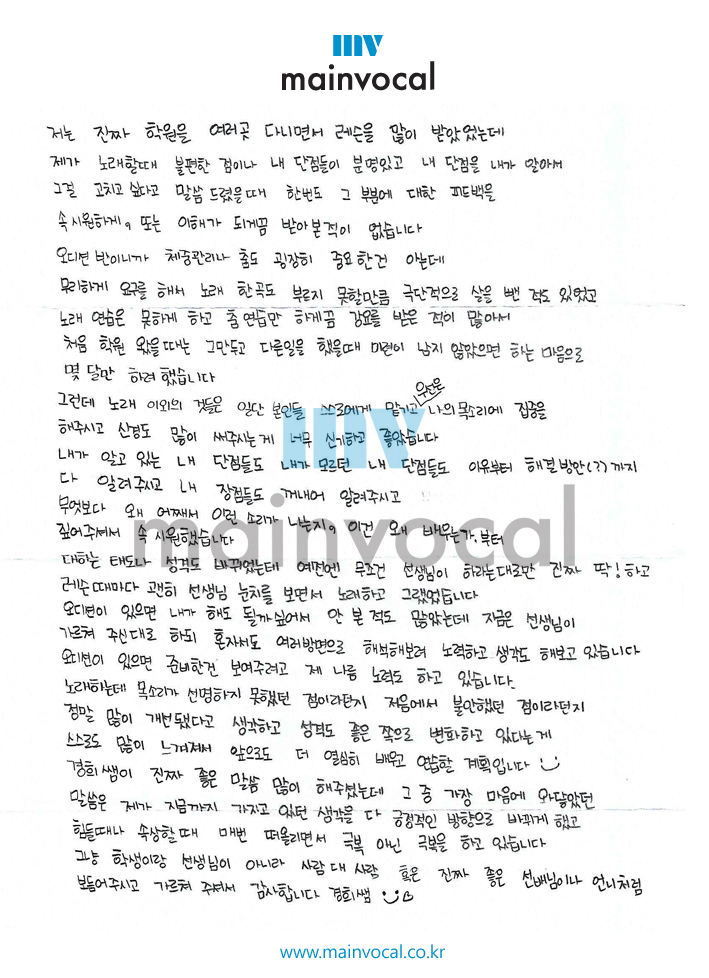 mv
mainvocal
저는 진짜 학원을 여러곳 다니면서 레슨을 많이 받았었는데
제가 노래할때 불편한 점이나 내 단점들이 분명있고 내 단점을 내가 알아서
그걸 고치고 싶다고 말씀 드렸을때 한번도 그 부분에 대한 피드백을
속 시원하게, 또는 이해가 되게끔 받아본적이 없습니다
오디션 반이니까 체중관리나 춤도 굉장히 중요한건 아는데
무리하게 요구를 해서 노래 한곡도 부르지 못할만큼 극단적으로 살을 뺀 적도 있었고
노래 연습은 못하게 하고 춤 연습만 하게끔 강요를 받은 적이 많아서
처음 학원 왔을때는 그만두고 다른일을 했을때 미련이 남지 않았으면 하는 마음으로
몇 달만 하려 했습니다
그런데 노래 이외의 것들은 일단 본인들 스스로에게 맡기고 우선은 나의 목소리에 집중을
해주시고 신경도 많이 써주시는게 너무 신기하고 좋았습니다
내가 알고 있는 내 단점들도 내가 모르던 내 단점들도 이유부터 해결방안(?)까지
다 알려주시고 내 장점들도 꺼내어 알려주시고
무엇보다 왜 어째서 이런 소리가 나는지, 이건 왜 배우는가,부터
짚어주셔서 속 시원했습니다
대하는 태도나 성격도 바뀌었는데 예전엔 무조건 선생님이 하라는대로만 진짜 딱! 하고
레슨때마다 괜히 선생님 눈치를 보면서 노래하고 그랬었습니다
오디션이 있으면 내가 해도 될까싶어서 안 본 적도 많았는데 지금은 선생님이
가르쳐 주신대로 하되 혼자서도 여러방면으로 해석해보려 노력하고 생각도 해보고 있습니다
오디션이 있으면 준비한건 보여주려고 제 나름 노력도 하고 있습니다.
노래하는데 목소리가 선명하지 못했던 점이라던지 저음에서 불안했던 점이라던지
정말 많이 개선됐다고 생각하고 성격도 좋은 쪽으로 변화하고 있다는게
스스로도 많이 느껴져서 앞으로도 더 열심히 배우고 연습할 계획입니다
경희쌤이 진짜 좋은 말씀 많이 해주셨는데 그 중 가장 마음에 와닿았던
말씀은 제가 지금까지 가지고 있던 생각을 다 긍정적인 방향으로 바뀌게 했고
힘들때나 속상할때 매번 떠올리면서 극복 아닌 극복을 하고 있습니다
그냥 학생이랑 선생님이 아니라 사람 대 사람 혹은 진짜 좋은 선배님이나 언니처럼
보듬어주시고 가르쳐 주셔서 감사합니다 경희쌤
mv
mainvocal
www.mainvocal.co.kr